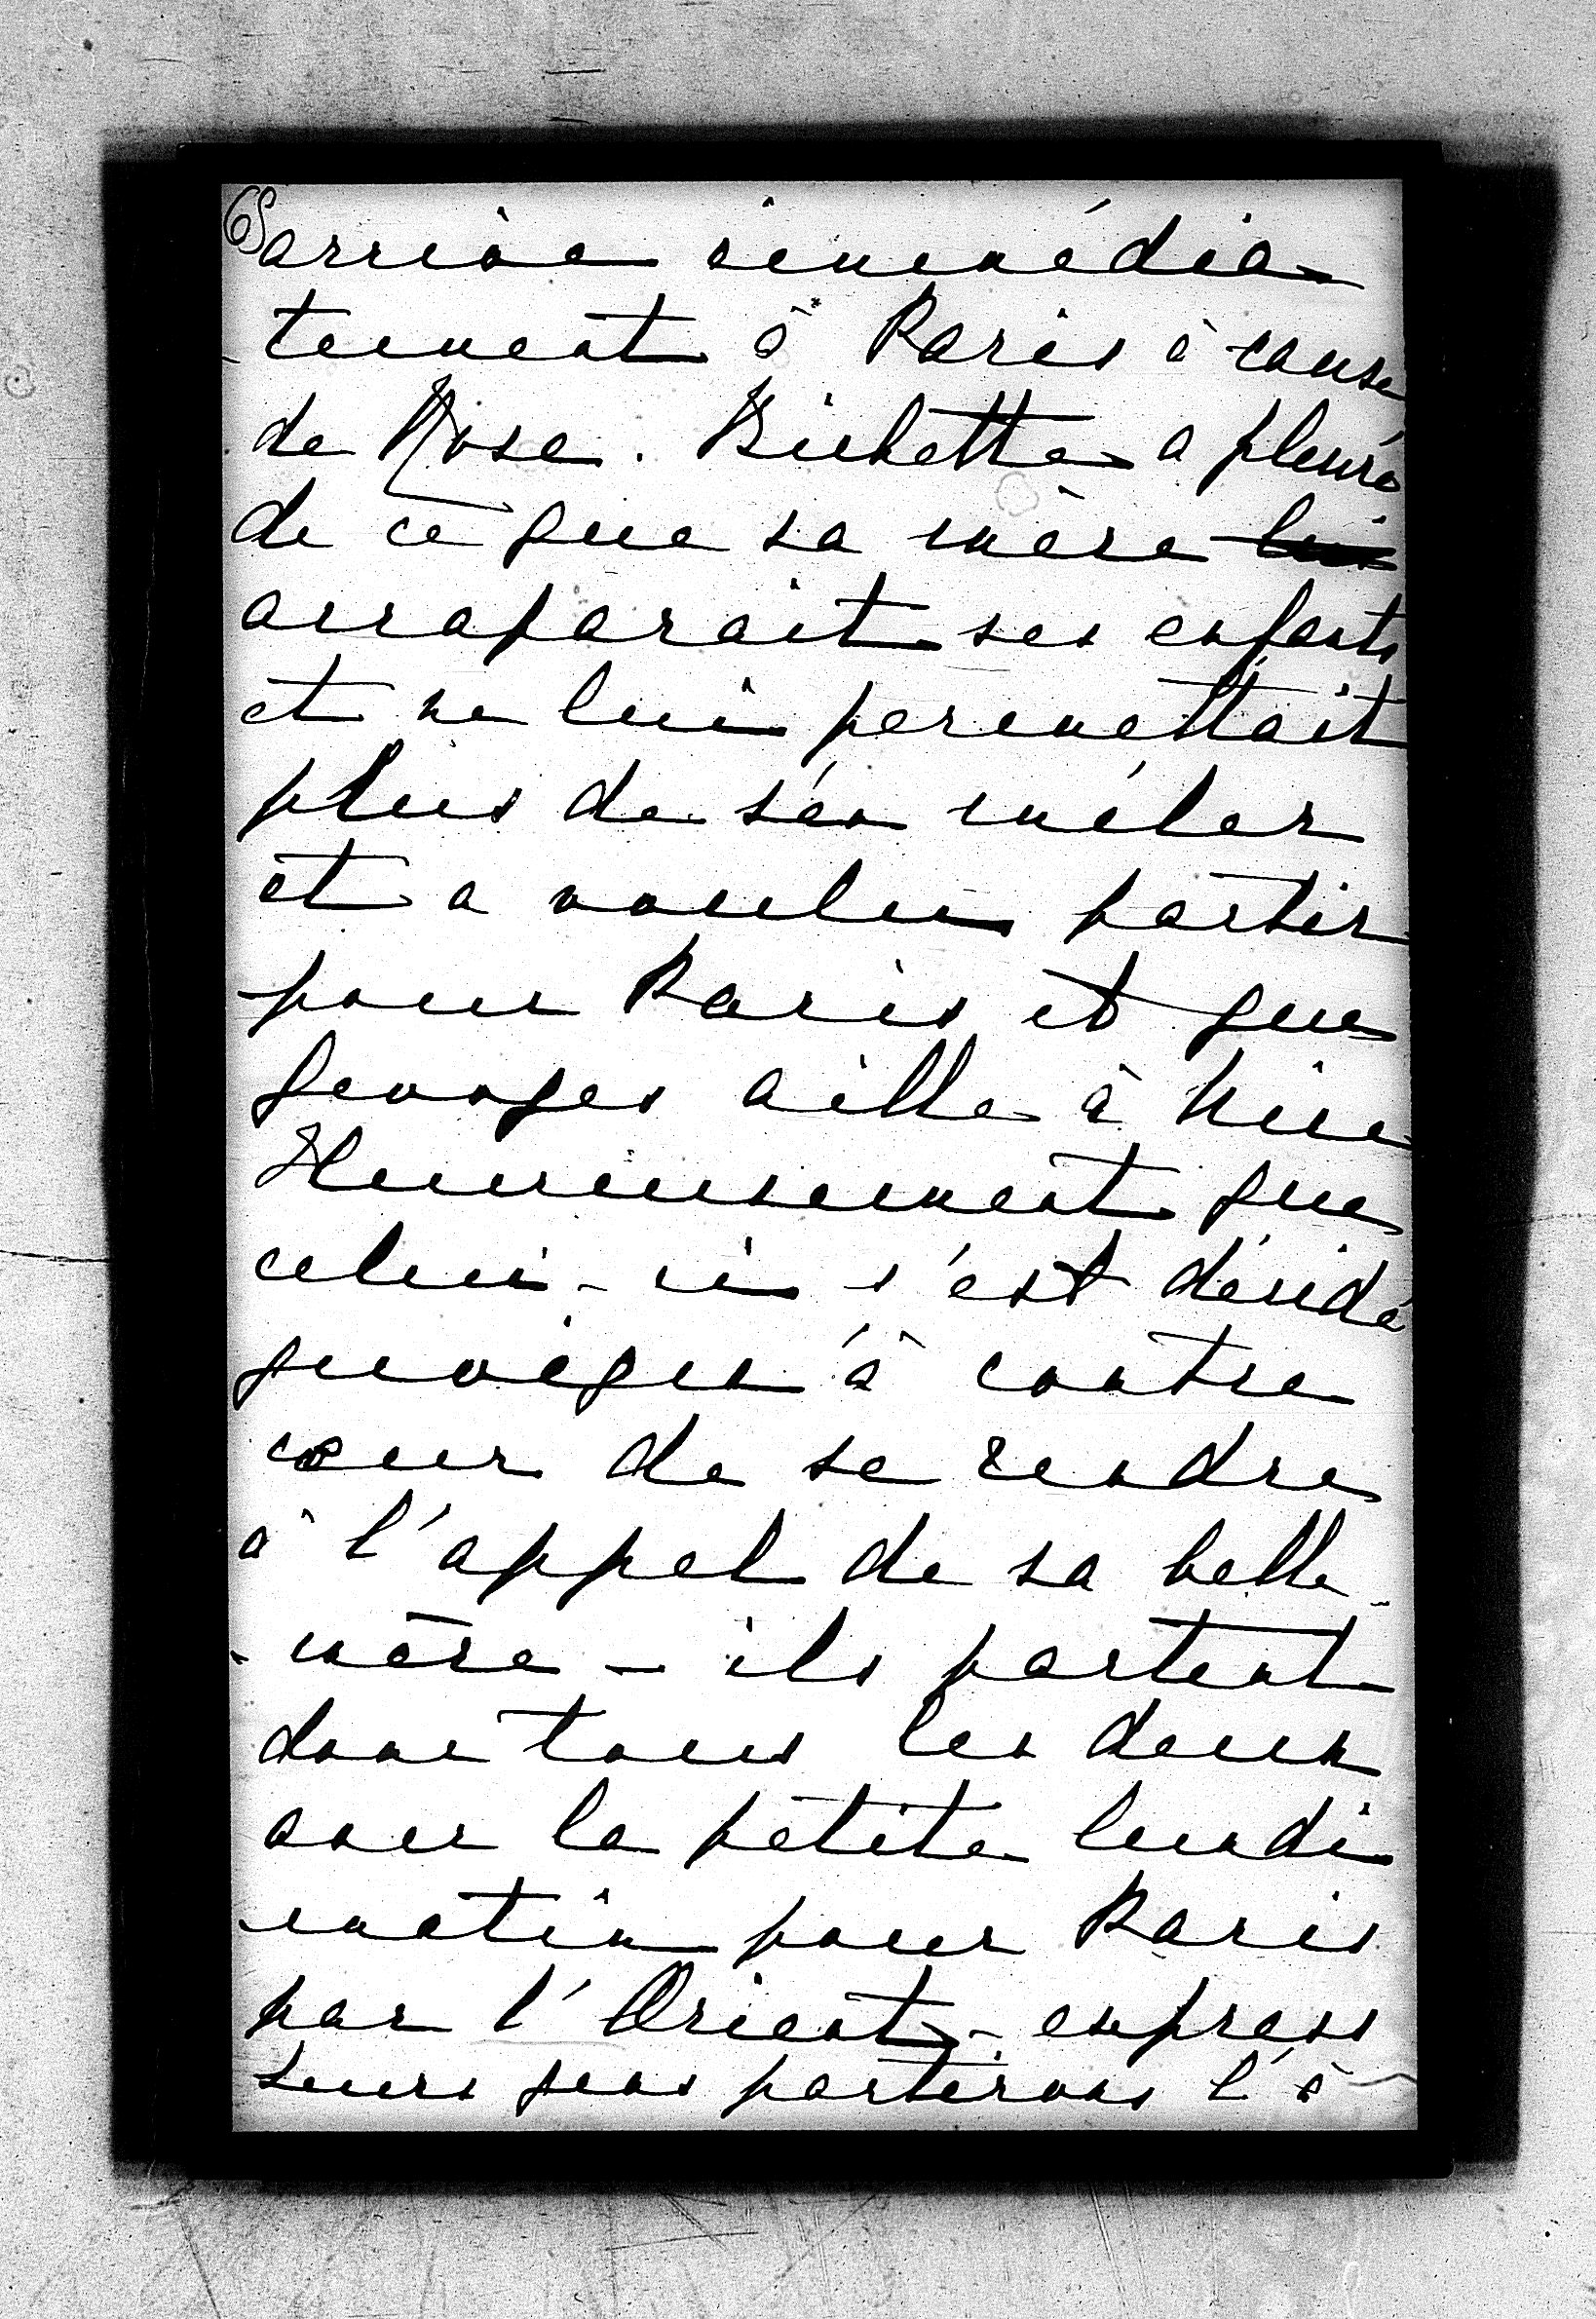 6) arrive immédia-
tement à Paris à cause
de Rose. Bichette a pleuré
de ce que sa mère lui
accaparait ses enfants
et ne lui permettait
plus de s'en mêler
et a voulu partir
pour Paris et que
Georges aille à Nice
Heureusement que
celui-ci s'est décidé
quoique à contre
cœur de se rendre
à l'appel de sa belle-
-mère – ils partent
donc tous les deux
avec la petite lundi
matin pour Paris
par l'Orient-express
Leurs gens partirons l'à